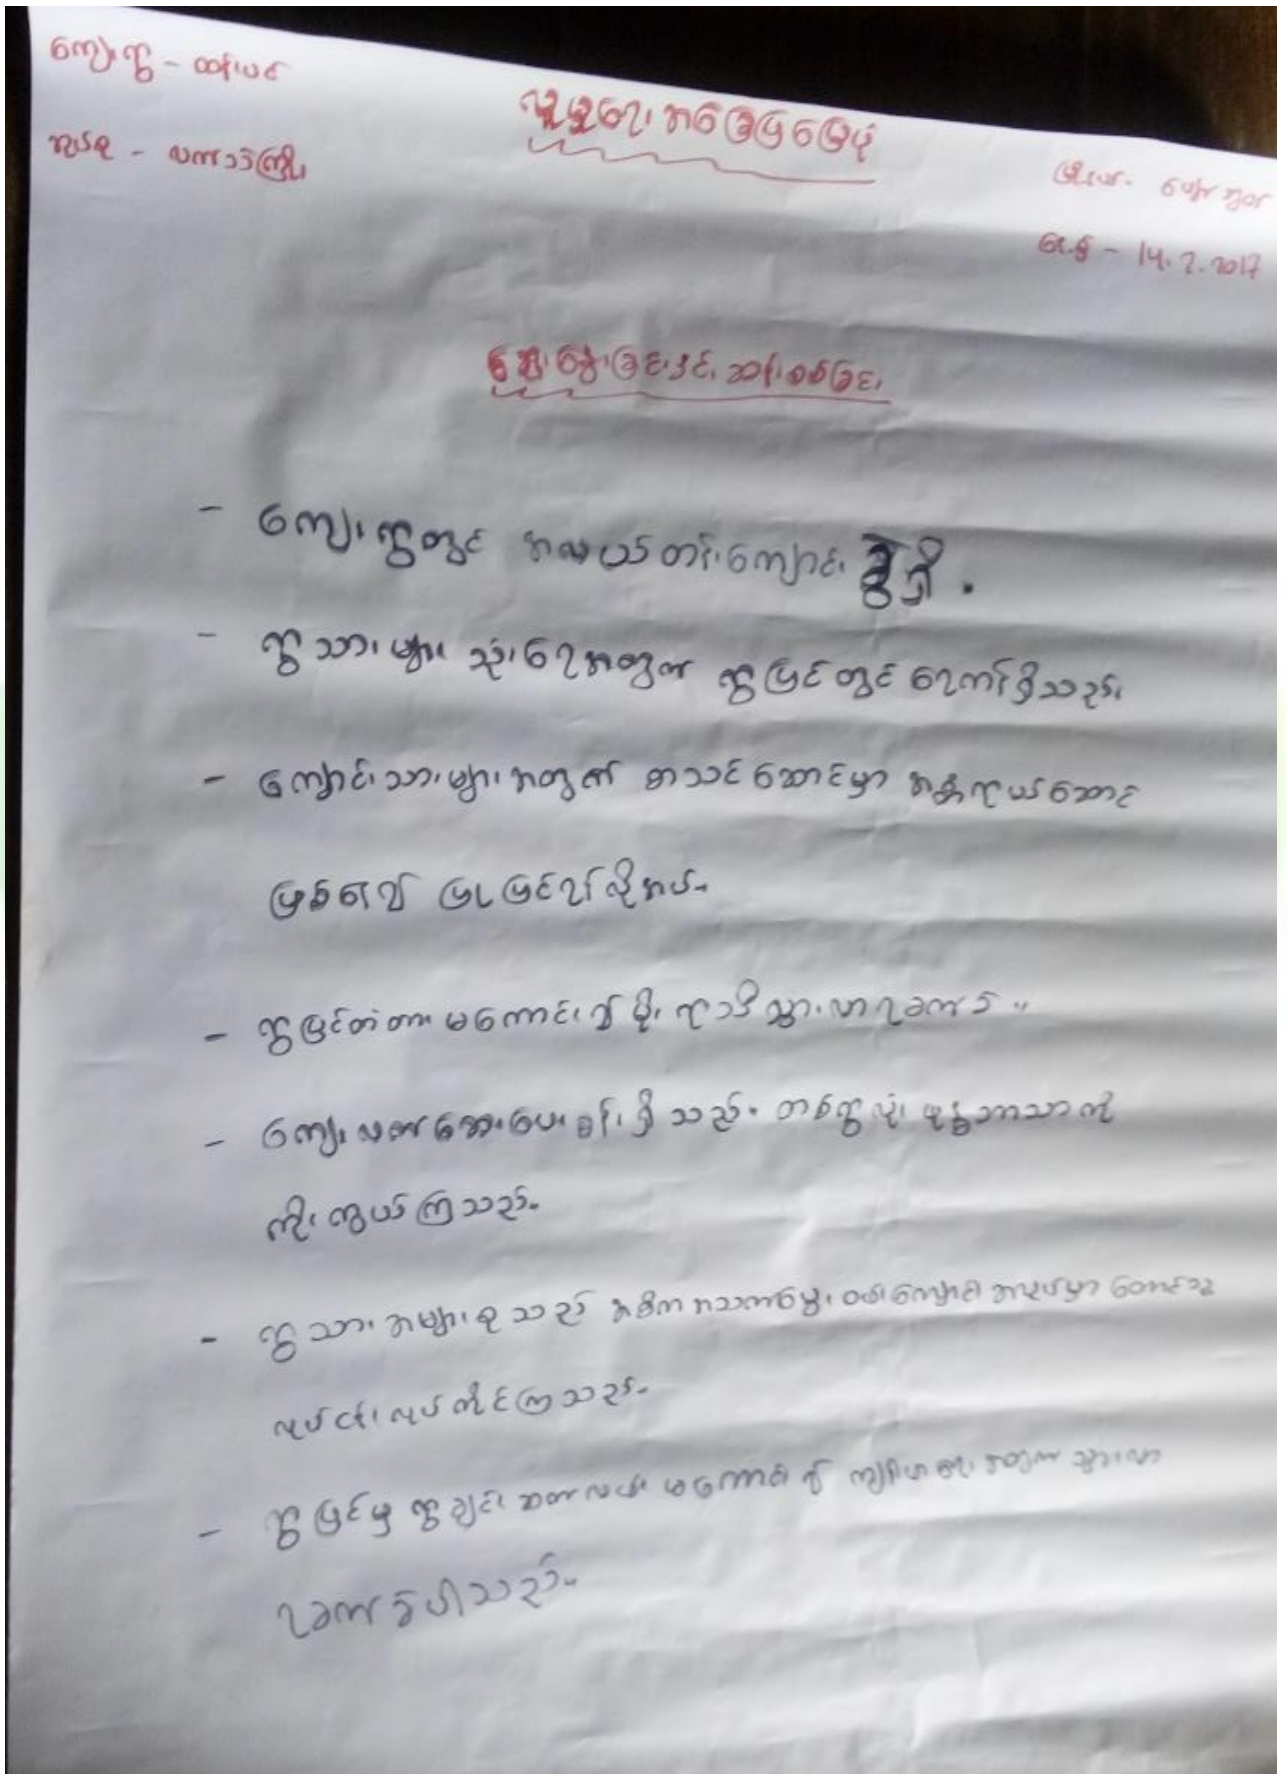 ကျေးရွာ - ထန်းပင်
လူမှုရေးအခြေပြမြေပုံ
အုပ်စု - လက်ခုပ်ကြီး
မြို့နယ် -
ရက်စွဲ - 14.2.2017
ဆွေးနွေးခြင်းနှင့် ဆန်းစစ်ခြင်း
- ကျေးရွာတွင် အလယ်တန်းကျောင်း ရှိ.
- ရွာသားများ သုံးရေအတွက် ရွာပြင်တွင် ရေကန်ရှိသည်။
- ကျောင်းသားများအတွက် စာသင်ဆောင်မှာ အန္တရာယ်ဆောင်
ဖြစ်၍ ပြုပြင်ရန်လိုအပ်။
- ရွာပြင်တံတား မကောင်း၍ မိုးရာသီသွားလာရခက်ခဲ။
- ကျေးလက်ဆေးပေးခန်းရှိသည်။ တစ်ရွာလုံး ဗုဒ္ဓဘာသာကို
ကိုးကွယ်ကြသည်။
- ရွာသားအများစုသည် အဓိကအသက်မွေးဝမ်းကျောင်းအလုပ်မှာ တောင်သူ
လုပ်ငန်းလုပ်ကိုင်ကြသည်။
- ရွာပြင်မှ ရွာချင်းဆက်လမ်း မကောင်း၍ ကျန်းမာရေးအတွက် သွားလာ
ရခက်ခဲပါသည်။